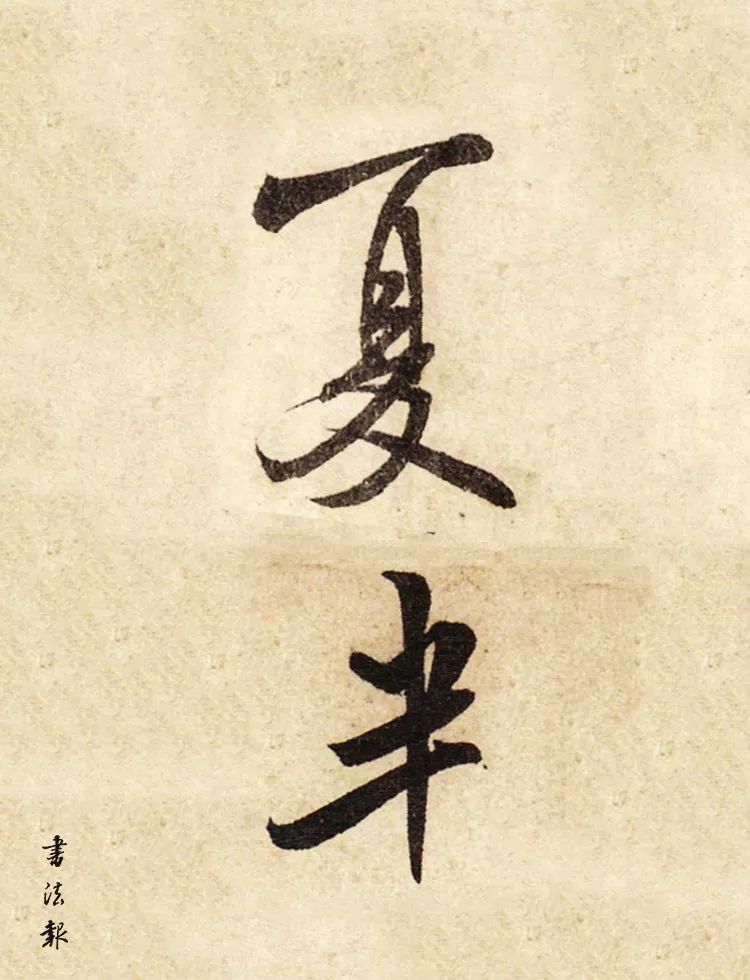 夏半
書法報